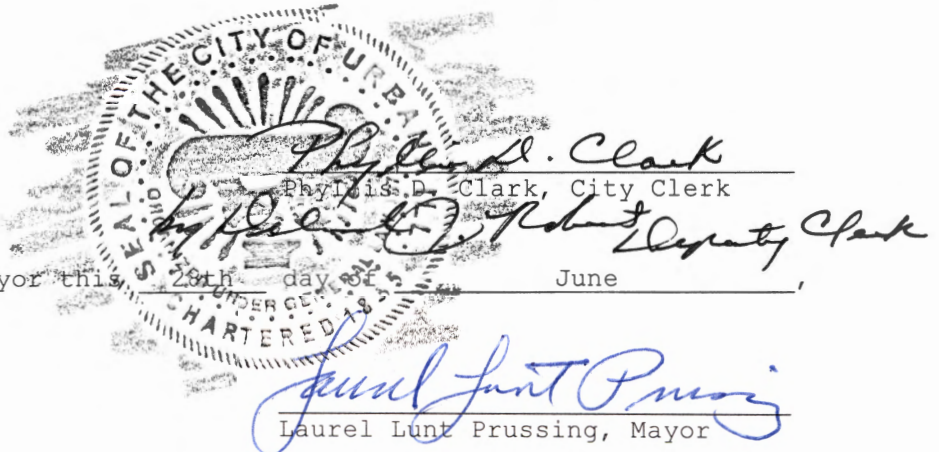 SEAL OF THE CITY OF URBANA
CHARTERED 1855
UNDER GENERAL
Phyllis D. Clark
Phyllis D. Clark, City Clerk
by J. Robert, Deputy Clerk
yor this 28th day of June ,
Laurel Lunt Prussing
Laurel Lunt Prussing, Mayor